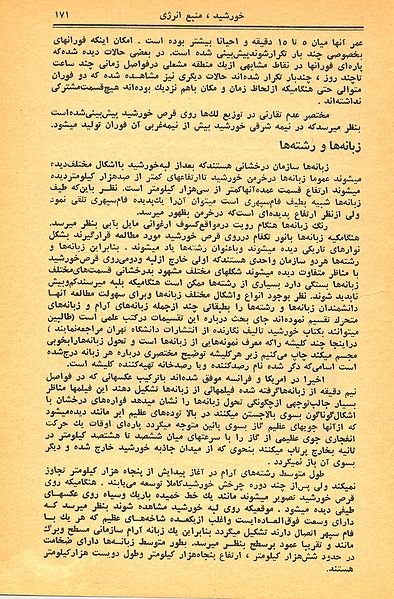 خورشید ، منبع انرژی ۱۷۱
عمر آنها میان ۵ تا ۱۵ دقیقه و احیانا بیشتر بوده است . امکان اینکه فورانهای
بخصوصی چند بار تکرارشوندپیش‌بینی شده است. در بعضی حالات دیده شده‌که
پاره‌ای فورانها در نقاط مشابهی ازیك منطقه مشعلی درفواصل زمانی چند ساعت
تاچند روز ، چندبار تکرار شده‌اند حالات دیگری نیز مشاهده شده که دو فوران
متوالی حتی هنگامیکه ازلحاظ زمان و مکان باهم نزدیك بوده‌اند هیچ‌قسمت‌مشترکی
نداشته‌اند .
مختصر عدم تقارنی در توزیع لك‌ها روی قرص خورشید پیش‌بینی‌شده‌است
بنظر میرسدکه در نیمه شرقی خورشید بیش از نیمه‌غربی آن فوران تولید میشود.
زبانه‌ها و رشته‌ها
زبانه‌ها سازمان درخشانی هستندکه بعداز لبه‌خورشید بااشکال مختلف‌دیده
میشوند عموما زبانه‌ها درخرمن خورشید تاارتفاعهای کمتر از صدهزار کیلومتردیده
میشوند ارتفاع قسمت عمده آنهاکمتر از سی‌هزار کیلومتر است. نظر باین‌که طیف
زبانه‌ها شبیه بطیف فام‌سپهری است میتوان آن‌را یك‌پدیده فام‌سپهری تلقی نمود
ولی ازنظر ارتفاع پدیده‌ای است‌که درخرمن بظهور میرسد.
رنگ زبانه‌ها هنگام رویت درمواقع‌کسوف ارغوانی مایل بآبی بنظر میرسد.
هنگامیکه زبانه‌ها بانور تکفام درروی قرص خورشید مورد مطالعه قرارگیرند بشکل
نوارهای تاریکی دیده میشوند وباعنوان رشته‌ها یاد میشوند . بنابراین زبانه‌ها و
رشته‌ها هردو سازمان واحدی هستندکه اولی خارج ازلبه ودومی‌روی قرص‌خورشید
با مناظر متفاوت دیده میشوند شکلهای مختلف مشهود بدرخشانی قسمت‌های‌مختلف
زبانه‌ها بستگی دارد بسیاری از رشته‌ها ممکن است هنگامیکه بلبه میرسندکم‌وبیش
ناپدید شوند. نظر بوجود انواع واشکال مختلف زبانه‌ها وبرای سهولت مطالعه آنهـا
دانشمندان زبانه‌ها و رشته‌ها را بطبقاتی چند ازجمله زبانه‌های آرام و زبانه‌های
متحرك تقسیم نموده‌اند جای بحث درباره این تقسیمات درکتب علمی است (طالبین
میتوانند بکتاب خورشید تالیف نگارنده از انتشارات دانشگاه تهران مراجعه‌نمایند )
دراینجا چند کلیشه راکه معرف نمونه‌هایی از زبانه‌ها است و تحول زبانه‌هارابخوبی
مجسم میکند چاپ می‌کنیم زیر هرکلیشه توضیح مختصری درباره هر زبانه درج‌شده
است اسامی‌که ذکر شده نام رصدکننده ویا رصدخانه تهیه‌کننده کلیشه است.
اخیرا در امریکا و فرانسه موفق شده‌اند باترکیب عکسهائی که در فواصل
نیم دقیقه از زبانه‌هاگرفته شده فیلمهائی از زبانه‌ها تشکیل دهند این فیلمها مناظر
بسیار جالب‌توجهی ازچگونگی تحول زبانه‌ها را نشان میدهد فواره‌های درخشان با
اشکال‌گوناگون بسوی بالاجستن میکنند در بالا توده‌های عظیم ابر مانند دیده‌میشود
که ازآنها جویهای عظیم گاز بسوی پائین متوجه میگردد پاره‌ای اوقات یك حرکت
انفجاری جوی عظیمی از گاز را با سرعتهای میان ششصد تا هشتصد کیلومتر در
ثانیه بخارج پرتاب میکند بنحوی که از میدان جاذبه خورشید خارج شده و دیگر
بسوی آن باز نمیگردد .
طول متوسط رشته‌های آرام در آغاز پیدایش از پنجاه هزار کیلومتر تجاوز
نمیکند ولی پس‌از چند دوره چرخش خورشیدکاملا توسعه می‌یابند . هنگامیکه روی
قرص خورشید تصویر میشوند مانند یك خط خمیده باریك وسیاه روی عکسهای
طیفی دیده میشود . موقعیکه روی لبه خورشید مشاهده شوند بنظر میرسد کـه
دارای وسعت فوق‌العاده‌ایست واغلب ازیکعده شاخه‌های عظیم که هر یك بـا
فام سپهر اتصال دارند تشکیل میگردد بنابراین یك زبانه آرام سازمانی مسطح وبرگی
مانند و تقریبا عمود برسطح بنظر میرسد. بطور متوسط زبانـه‌ها دارای ضخامت
در حدود شش‌هزار کیلومتر ، ارتفاع پنجاه‌هزار کیلومتر وطول دویست هزارکیلومتر
هستند.